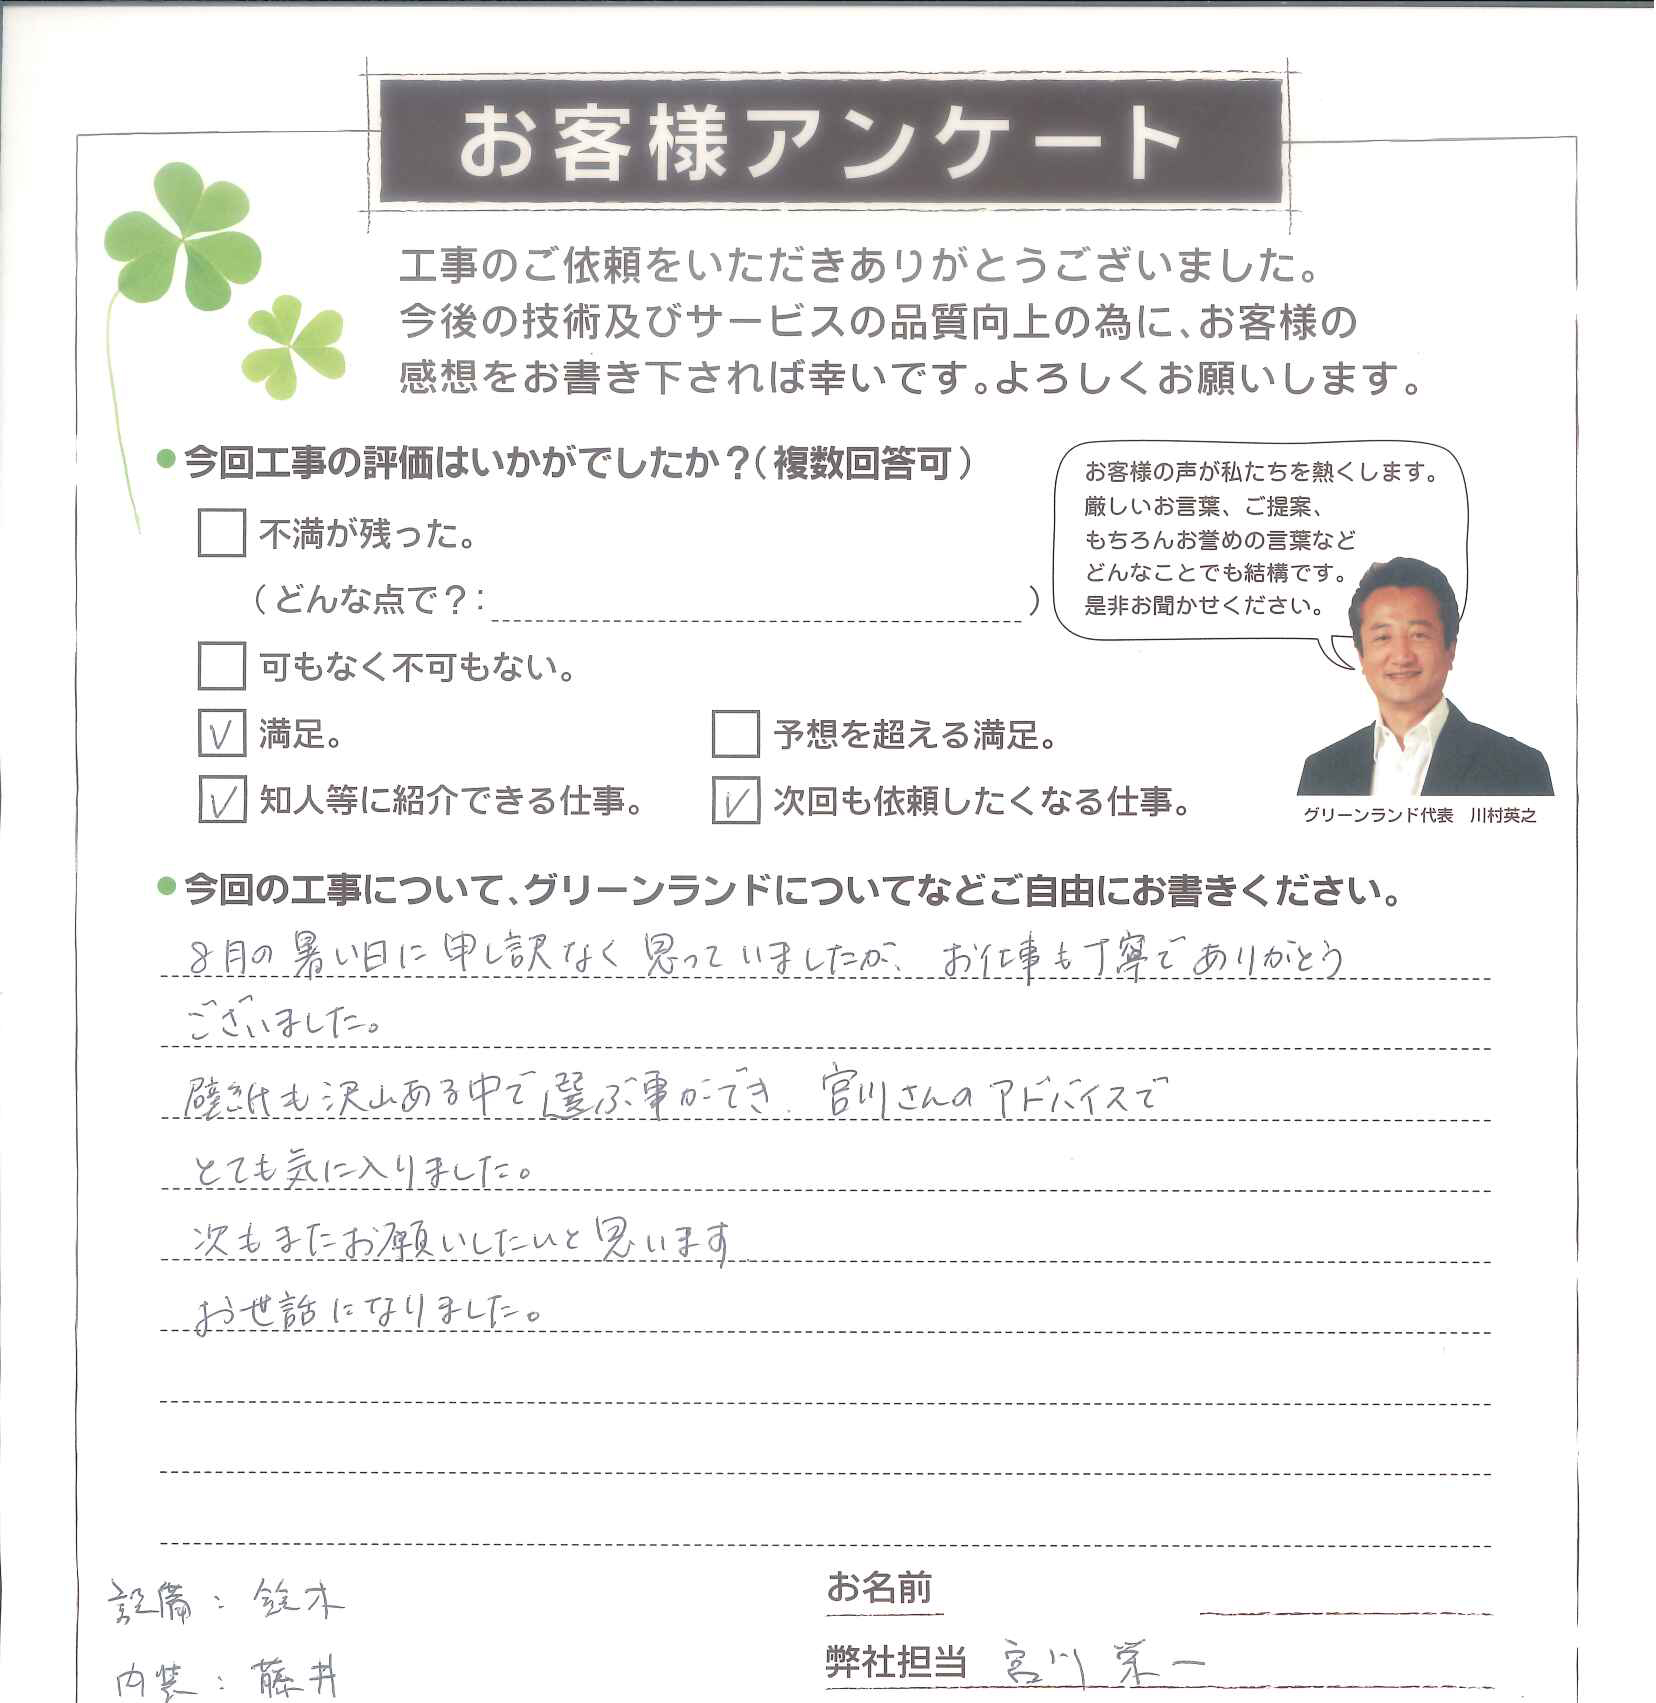 お客様アンケート
工事のご依頼をいただきありがとうございました。
今後の技術及びサービスの品質向上の為に、お客様の
感想をお書き下されば幸いです。よろしくお願いします。
●今回工事の評価はいかがでしたか？（複数回答可）
不満が残った。
（どんな点で？： ）
可もなく不可もない。
満足。
予想を超える満足。
知人等に紹介できる仕事。
次回も依頼したくなる仕事。
お客様の声が私たちを熱くします。
厳しいお言葉、ご提案、
もちろんお誉めの言葉など
どんなことでも結構です。
是非お聞かせください。
グリーンランド代表　川村英之
●今回の工事について、グリーンランドについてなどご自由にお書きください。
8月の暑い日に申し訳なく思っていましたが、お仕事も丁寧でありがとう
ございました。
壁紙も沢山ある中で選ぶ事ができ、宮川さんのアドバイスで
とても気に入りました。
次もまたお願いしたいと思います
お世話になりました。
設備：鈴木
内装：藤井
お名前
弊社担当 宮川 栄一